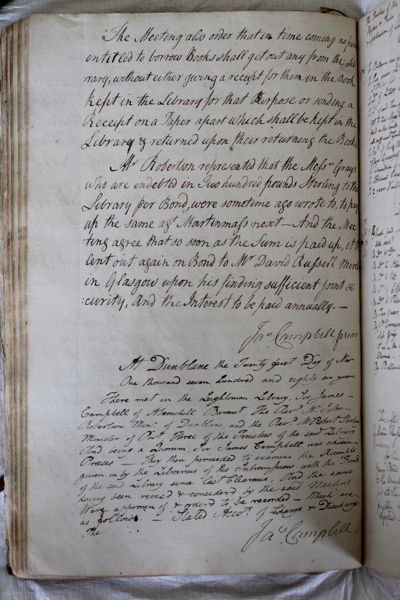 The Meeting also order that in time coming no person
entitled to borrow Books shall get out any from the Lib
rary, without either giving a receipt for them in the Book
kept in the Library for that Purpose or sending a
Receipt on a Paper apart which shall be kept in the
Library & returned upon their returning the Books
Mr. Robertson represented that the Messrs. Grays
who are indebted in Two hundred pounds Sterling to the
Library per Bond, were sometime ago wrote to, to pay
up the same agt. Martinmass next — And the Mee
ting agree that so soon as the Sum is paid up, it be
lent out again on Bond to Mr. David Russell Merct.
in Glasgow upon his finding sufficient joint se
curity, And the Interest to be paid annually. —
Jas. Campbell preses
At Dunblane the Twenty first Day of Nov
One thousand seven hundred and eighty six years
There met in the Leightonian Library, Sir James
Campbell of Aberuchill Baronet The Revd. Mr. John
Robertson Minr. of Dunblane and the Revd. Mr. Robert Stirling
Minister of Three of the Trustees of the said Library
And being a Quorum Sir James Campbell was chosen
Preses — They then proceeded to examine the Accompts
given in by the Librarius of his Intromissions with the Funds
of the said Library since last Clearance, And the same
having been revised & considered by the said Meeting
Were approven of & order'd to be recorded — Which are
as follows. — Stated Accot. of Charge & Discharge
The
Jas. Campbell